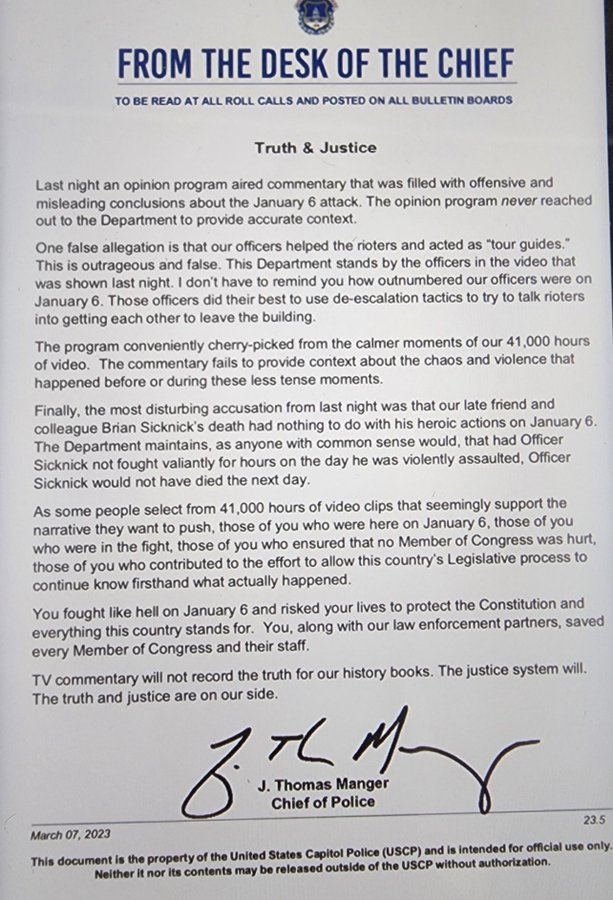 FROM THE DESK OF THE CHIEF
TO BE READ AT ALL ROLL CALLS AND POSTED ON ALL BULLETIN BOARDS
Truth & Justice
Last night an opinion program aired commentary that was filled with offensive and
misleading conclusions about the January 6 attack. The opinion program never reached
out to the Department to provide accurate context.
One false allegation is that our officers helped the rioters and acted as "tour guides."
This is outrageous and false. This Department stands by the officers in the video that
was shown last night. I don't have to remind you how outnumbered our officers were on
January 6. Those officers did their best to use de-escalation tactics to try to talk rioters
into getting each other to leave the building.
The program conveniently cherry-picked from the calmer moments of our 41,000 hours
of video. The commentary fails to provide context about the chaos and violence that
happened before or during these less tense moments.
Finally, the most disturbing accusation from last night was that our late friend and
colleague Brian Sicknick's death had nothing to do with his heroic actions on January 6.
The Department maintains, as anyone with common sense would, that had Officer
Sicknick not fought valiantly for hours on the day he was violently assaulted, Officer
Sicknick would not have died the next day.
As some people select from 41,000 hours of video clips that seemingly support the
narrative they want to push, those of you who were here on January 6, those of you
who were in the fight, those of you who ensured that no Member of Congress was hurt,
those of you who contributed to the effort to allow this country's Legislative process to
continue know firsthand what actually happened.
You fought like hell on January 6 and risked your lives to protect the Constitution and
everything this country stands for. You, along with our law enforcement partners, saved
every Member of Congress and their staff.
TV commentary will not record the truth for our history books. The justice system will.
The truth and justice are on our side.
J. Thomas Manger
Chief of Police
23.5
March 07, 2023
This document is the property of the United States Capitol Police (USCP) and is intended for official use only.
Neither it nor its contents may be released outside of the USCP without authorization.